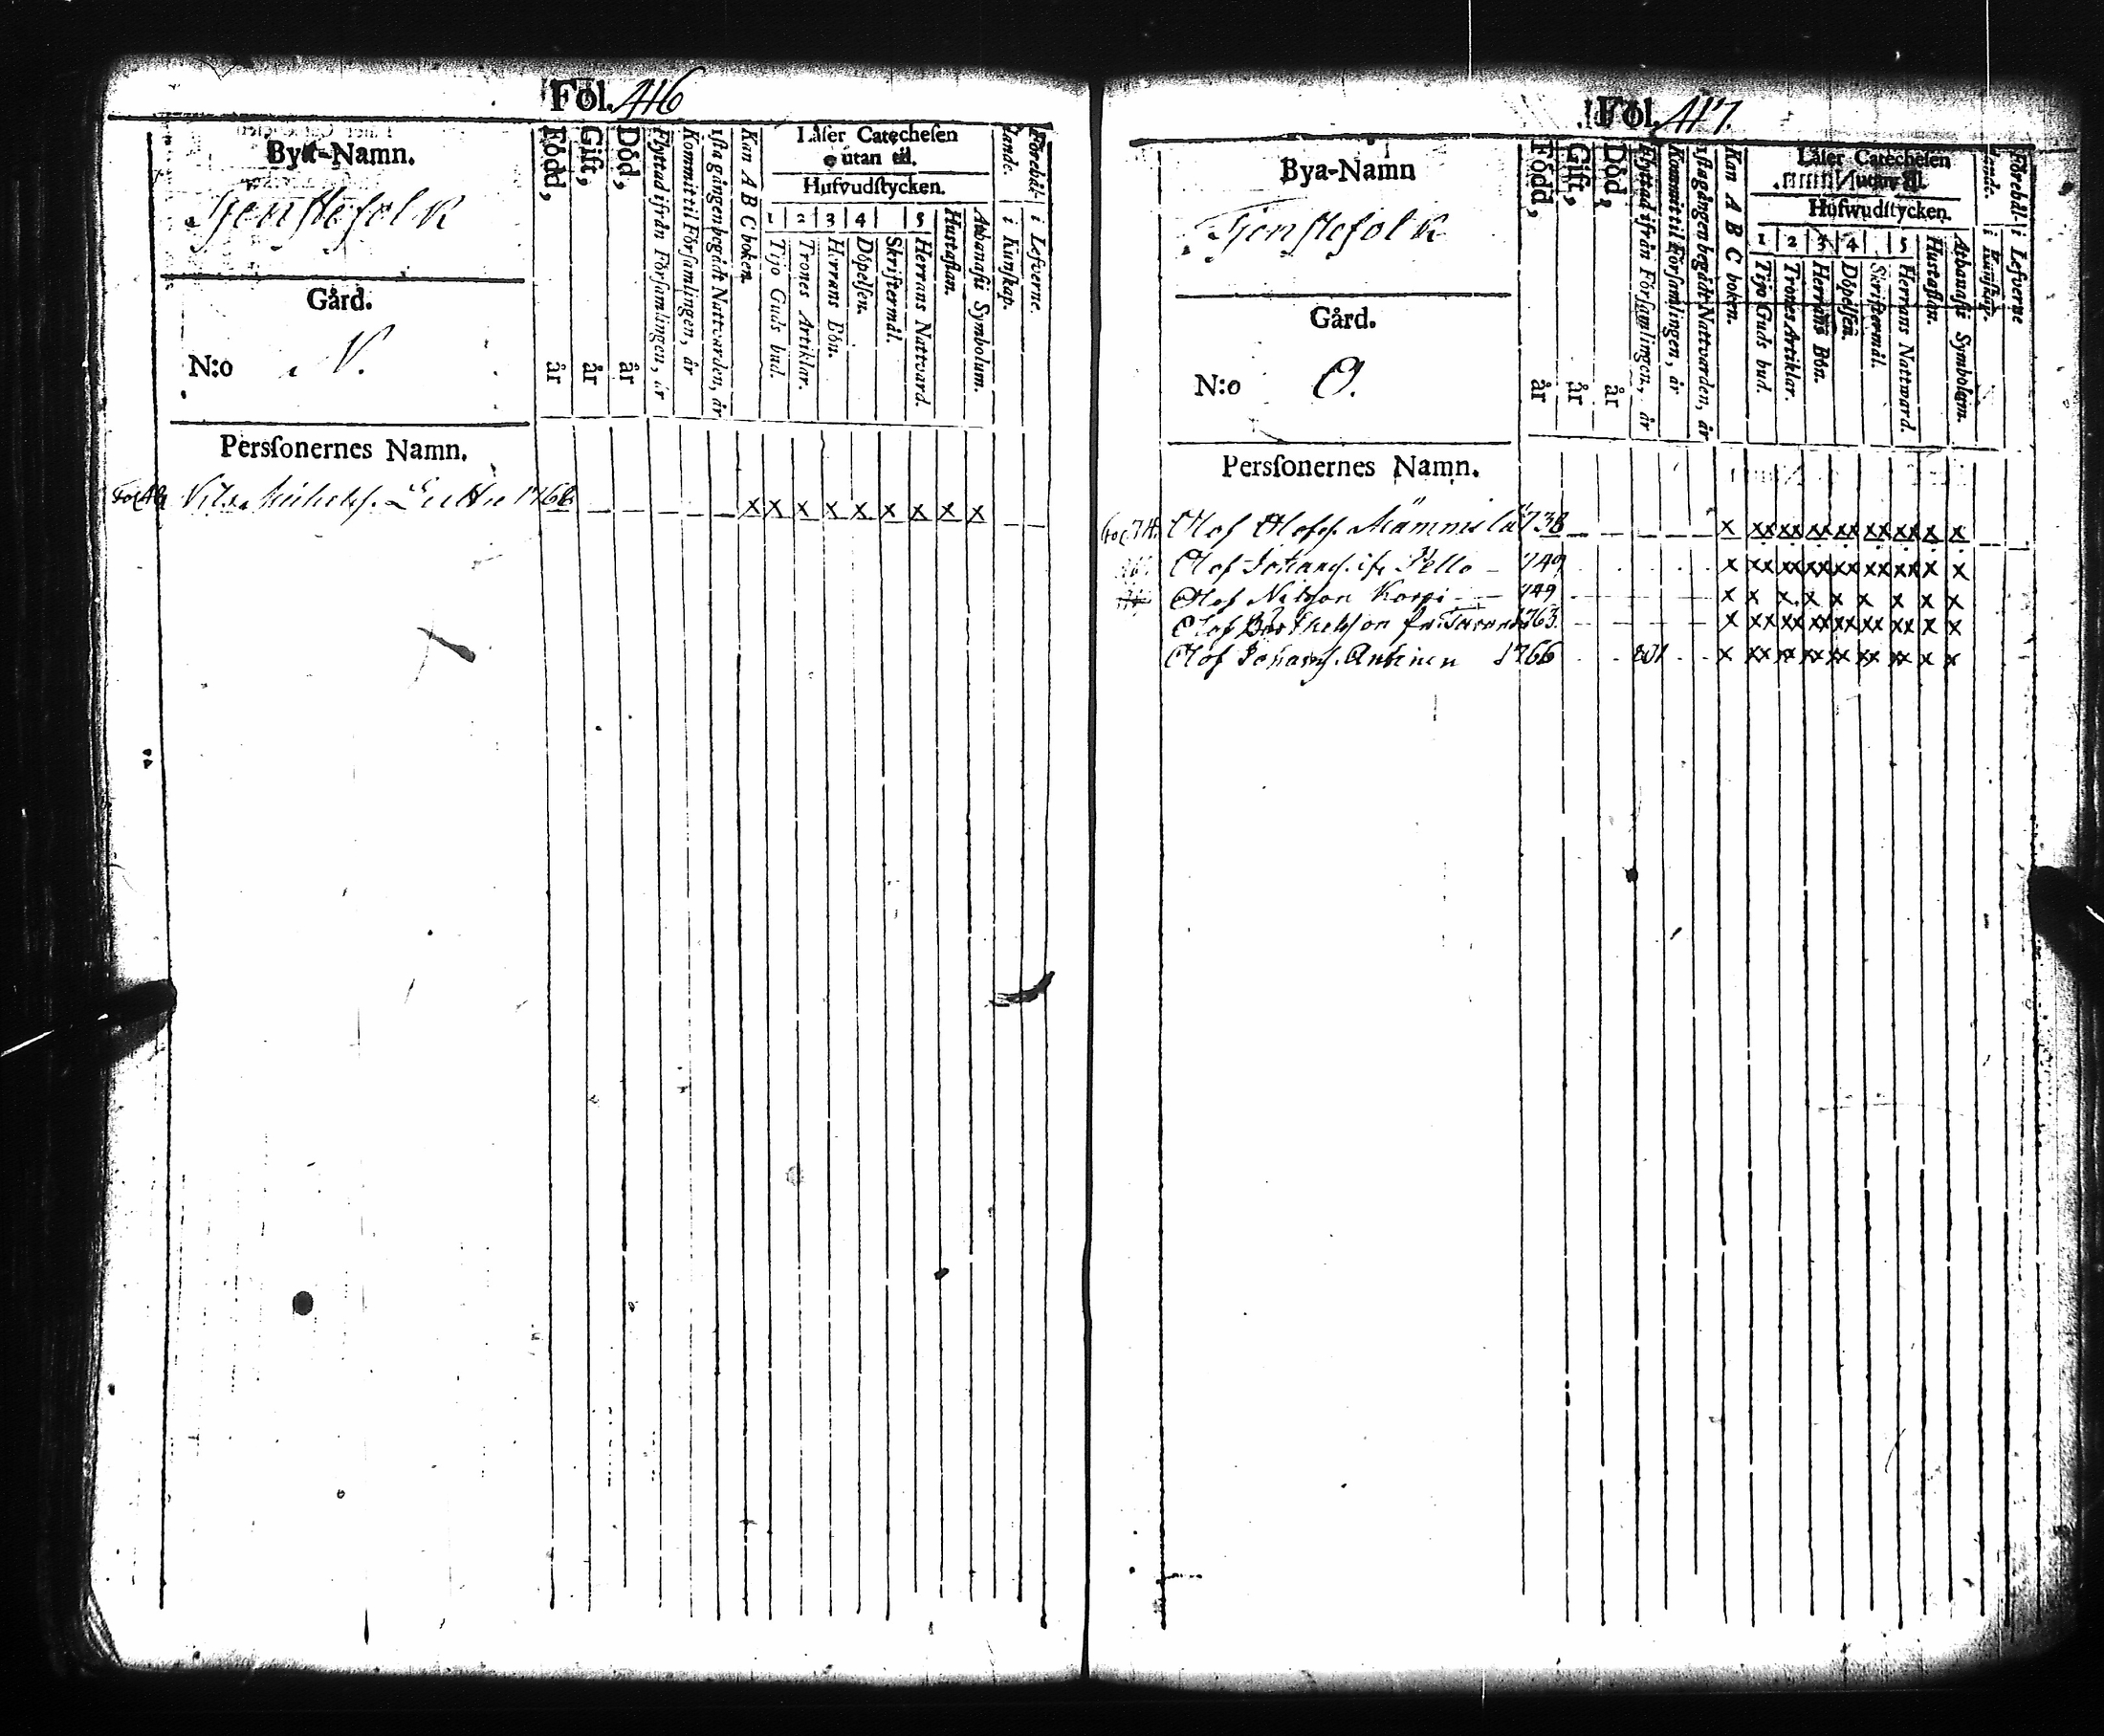 Fol. 416
Bya-Namn.
Tjenstefolk
Gård.
N:o N.
Persſonernes Namn.
Född, år
Gift, år
Död, år
Flyttad ifrån Förſamlingen, år
Kommit til Förſamlingen, år
1ſta gången begådt Nattvarden, år
Kan A B C boken.
Låſer Catecheſen
utan til.
Hufvudſtycken.
1 2 3 4 5
Tijo Guds bud.
Trones Artiklar.
Herrans Bön.
Döpelſen.
Skriftermål.
Herrans Nattvard.
Huſtaflan.
Athanaſii Symbolum.
Förehål-
lande.
i Kunſkap.
i Lefverne.
Nils 1766 x x x x x x x x x
Fol. 417.
Bya-Namn
Tjenstefolk
Gård.
N:o O.
Persſonernes Namn.
Född, år
Gift, år
Död, år
Flyttad ifrån Förſamlingen, år
Kommit til Förſamlingen, år
1ſta gången begådt Nattvarden, år
Kan A B C boken.
Låſer Catecheſen
utan til.
Hufwudſtycken.
1 2 3 4 5
Tijo Guds bud.
Trones Artiklar.
Herrans Bön.
Döpelſen.
Skriftermål.
Herrans Nattward.
Huſtaflan.
Athanaſii Symbolum.
Förehål-
lande.
i Kunſkap.
i Lefverne
Olof Olofs. 1738 x xx xx xx xx xx xx x x
Olof Johans. if. Pello 749 x xx xx xx xx xx xx x x
Olof Nilsson Korpi 749 x x x x x x x x x
Olof 1763 x xx xx xx xx xx xx x x
Olof Johans. Anttinen 1766 801 x xx xx xx xx xx xx x x